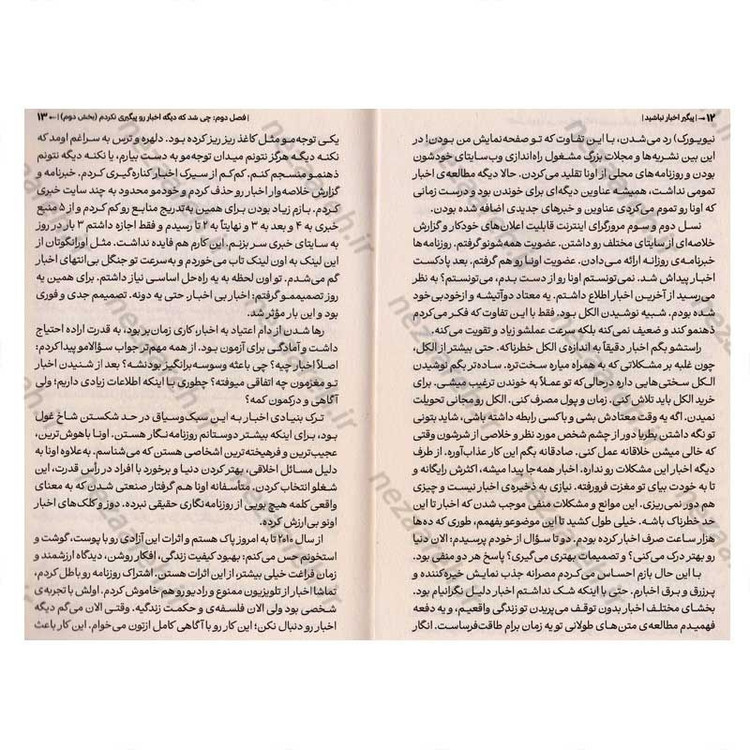 ۱۲ → | پیگیر اخبار نباشید |
نیویورک) رد می‌شدن، با این تفاوت که تو صفحه‌نمایش من بودن! در
این بین نشریه‌ها و مجلات بزرگ مشغول راه‌اندازی وب‌سایتای خودشون
بودن و روزنامه‌های محلی از اونا تقلید می‌کردن. حالا دیگه مطالعه‌ی اخبار
تمومی نداشت، همیشه عناوین دیگه‌ای برای خوندن بود و درست زمانی
که اونا رو تموم می‌کردی عناوین و خبرهای جدیدی اضافه شده بودن.
نسل دوم و سوم مرورگرای اینترنت قابلیت اعلان‌های خودکار و گزارش
خلاصه‌ای از سایتای مختلف رو داشتن. عضویت همه‌شونو گرفتم. روزنامه‌ها
خبرنامه‌ی روزانه ارائه می‌دادن. عضویت اونا رو هم گرفتم. بعد پادکست
اخبار پیداش شد. نمی‌تونستم اونا رو از دست بدم، می‌تونستم؟ به نظر
می‌رسید از آخرین اخبار اطلاع داشتم. یه معتاد دوآتیشه و ازخودبی‌خود
شده بودم. شبیه نوشیدن الکل بود. فقط با این تفاوت که فکر می‌کردم
ذهنمو کند و ضعیف نمی‌کنه بلکه سرعت عملشو زیاد و تقویت می‌کنه.
راستشو بگم اخبار دقیقاً به اندازه‌ی الکل خطرناکه. حتی بیشتر از الکل،
چون غلبه بر مشکلاتی که به همراه میاره سخت‌تره. ساده‌تر بگم نوشیدن
الکل سختی‌هایی داره درحالی‌که تو عملاً به خوندن ترغیب میشی. برای
خرید الکل باید تلاش کنی. زمان و پول مصرف کنی. الکل رو مجانی تحویلت
نمیدن. اگه به وقت معتادش بشی و با کسی رابطه داشته باشی، شاید بتونی
تو نگه داشتن بطریا دور از چشم شخص مورد نظر و خلاصی از شرشون وقتی
که خالی میشن خلاقانه عمل کنی. صادقانه بگم این کار عذاب‌آوره. از طرف
دیگه اخبار این مشکلات رو نداره. اخبار همه‌جا پیدا میشه، اکثرش رایگانه و
تا به خودت بیای تو مغزت فرورفته. نیازی به ذخیره‌ی اخبار نیست و چیزی
هم دور نمی‌ریزی. این موانع و مشکلات منفی موجب شدن که اخبار تا این
حد خطرناک باشه. خیلی طول کشید تا این موضوعو بفهمم، طوری که ده‌ها
هزار ساعت صرف اخبار کرده بودم. دو تا سؤال از خودم پرسیدم: الان دنیا
رو بهتر درک می‌کنی؟ و تصمیمات بهتری می‌گیری؟ پاسخ هر دو منفی بود.
با این حال بازم احساس می‌کردم مصرانه جذب نمایش خیره‌کننده و
پرزرق و برق اخبارم. حتی با اینکه شک نداشتم اخبار دلیل نگرانیام بود.
بخشای مختلف اخبار بدون توقف می‌پریدن تو زندگی واقعیم، و یه دفعه
فهمیدم مطالعه‌ی متن‌های طولانی تو یه زمان برام طاقت‌فرساست. انگار
| فصل دوم: چی شد که دیگه اخبار رو پیگیری نکردم (بخش دوم) | ← ۱۳
یکی توجه‌مو مثل کاغذ ریز ریز کرده بود. دلهره و ترس به سراغم اومد که
نکنه دیگه هرگز نتونم میدان توجه‌مو به دست بیارم، یا نکنه دیگه نتونم
ذهنمو منسجم کنم. کم‌کم از سیرک اخبار کناره‌گیری کردم. خبرنامه و
گزارش خلاصه‌وار اخبار رو حذف کردم و خودمو محدود به چند سایت خبری
کردم. بازم زیاد بودن برای همین به‌تدریج منابع رو کم کردم و از ۵ منبع
خبری به ۴ و بعد به ۳ و نهایتاً به ۲ تا رسیدم و فقط اجازه داشتم ۳ بار در روز
به سایتای خبری سر بزنم. این کارم هم فایده نداشت. مثل اورانگوتان از
این لینک به اون لینک تاب می‌خوردم و به‌سرعت تو جنگل بی‌انتهای اخبار
گم می‌شدم. تو اون لحظه به یه راه‌حل اساسی نیاز داشتم. برای همین یه
روز تصمیممو گرفتم: اخبار بی اخبار، حتی یه دونه. تصمیمم جدی و فوری
بود و این بار مؤثر شد.
رها شدن از دام اعتیاد به اخبار، کاری زمان‌بر بود، به قدرت اراده احتیاج
داشت و آمادگی برای آزمون بود. از همه مهم‌تر جواب سؤالامو پیدا کردم:
اصلاً اخبار چیه؟ چی باعثه وسوسه برانگیز بودنشه؟ بعد از شنیدن اخبار
تو مغزمون چه اتفاقی میوفته؟ چطوری با اینکه اطلاعات زیادی داریم؛ ولی
آگاهی و درکمون کمه؟
ترک بنیادی اخبار به این سبک‌وسیاق در حد شکستن شاخ غول
بود، برای اینکه بیشتر دوستانم روزنامه‌نگار هستن. اونا باهوش‌ترین،
عجیب‌ترین و فرهیخته‌ترین اشخاصی هستن که می‌شناسم. به‌علاوه اونا به
دلیل مسائل اخلاقی، بهتر کردن دنیا و برخورد با افراد در رأس قدرت، این
شغلو انتخاب کردن. متأسفانه اونا هم گرفتار صنعتی شدن که به معنای
واقعی کلمه هیچ بویی از روزنامه‌نگاری حقیقی نبرده. دوز و کلک‌های اخبار
اونو بی‌ارزش کرده.
از سال ۲۰۱۰ تا به امروز پاک هستم و اثرات این آزادی رو با پوست، گوشت و
استخونم حس می‌کنم: بهبود کیفیت زندگی، افکار روشن، دیدگاه ارزشمند و
زمان فراغت خیلی بیشتر، از این اثرات هستن. اشتراک روزنامه رو باطل کردم،
تماشا اخبار از تلویزیون ممنوع و رادیو رو هم خاموش کردم. اولش با تجربه‌ی
شخصی بود ولی الان فلسفه‌ی و حکمت زندگیه. وقتی الان می‌گم دیگه
اخبار رو دنبال نکن؛ این کار رو با آگاهی کامل ازتون می‌خوام. این کار باعث
nezaareh.ir